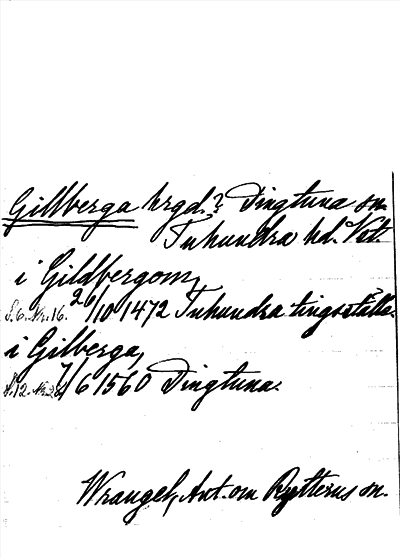 Gillberga hrgd.? Dingtuna sn.
Tuhundra hd. Vstl.
i Gildbergom,
S. 6. Nr. 16. 26/10 1472 Tuhundra tingsställe.
i Gilberga,
S. 12. Nr. 2 7/6 1560 Dingtuna.
Wrangel, Ant. om Rytterns sn.